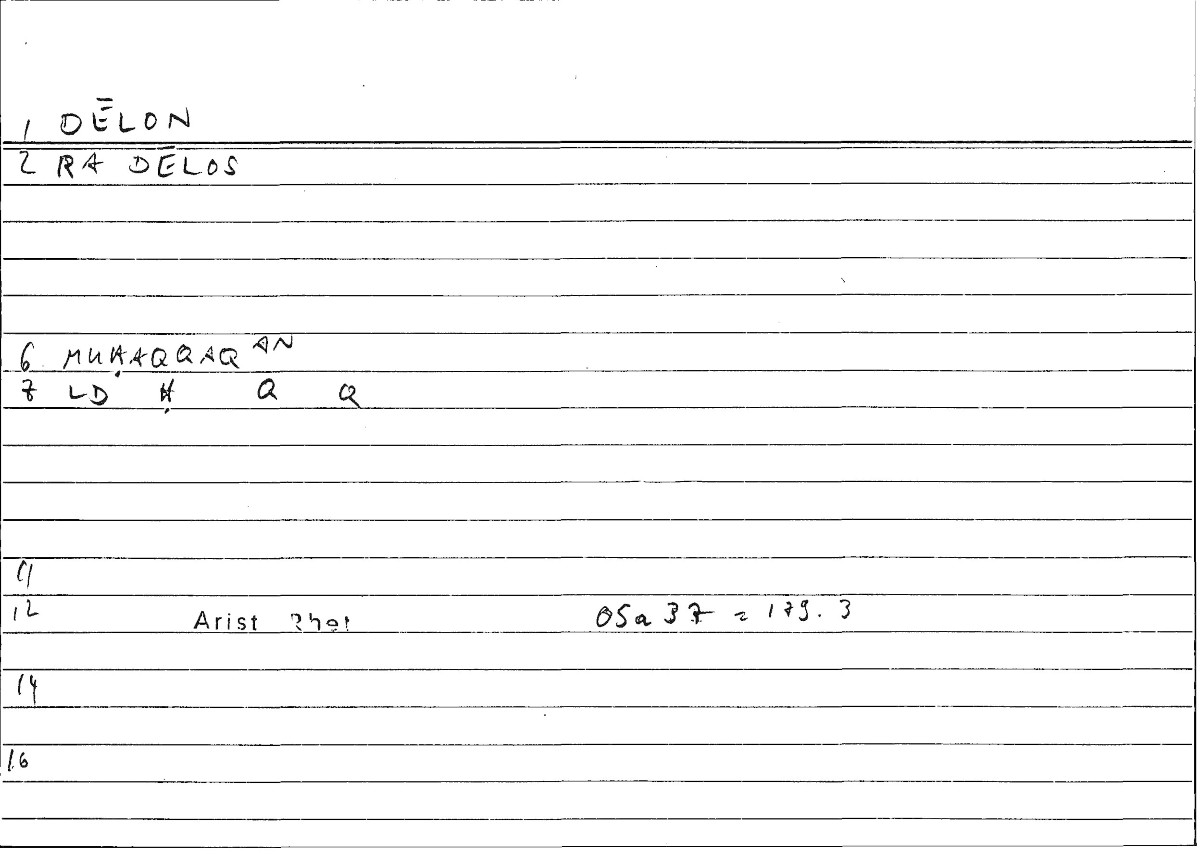 1 DĒLON
2 RA DĒLOS
6 MUḤAQQAQAN
7 LD Ḥ Q Q
11
12 Arist Rhet 05a37 = 179.3
14
16